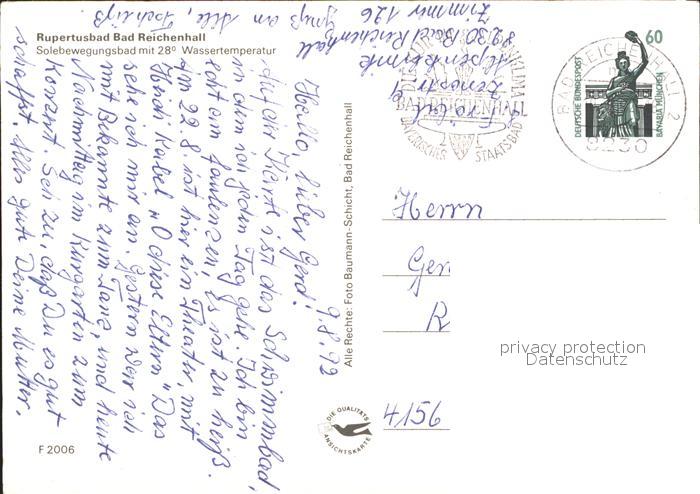 Rupertusbad Bad Reichenhall
Solebewegungsbad mit 28° Wassertemperatur
9.8.92
Hallo, lieber Gerd!
Auf der Karte ist das Schwimmbad,
in dem ich jeden Tag gehe. Ich bin
echt am faulenzen, es ist zu heiß.
Am 22.8. ist hier ein Theater, mit
Heidi Kabel "O diese Eltern" Das
sehe ich mir an. Gestern war ich
mit Bekannte zum Tanz, und heute
Nachmittag im Kurgarten zum
Konzert. Sei zu, daß Du es gut
schaffst. Alles gute Deine Mutter.
Gruß an Alle, Tschüß
Alpenklinik
8230 Bad Reichenhall
Zimmer 126
Alle Rechte: Foto Baumann-Schicht, Bad Reichenhall
BAD REICHENHALL
BAYERISCHES STAATSBAD
BAD REICHENHALL 2
8230
60
DEUTSCHE BUNDESPOST
BAVARIA MÜNCHEN
Herrn
Ger
R
4156
privacy protection
Datenschutz
DIE QUALITÄTS
ANSICHTSKARTE
F 2006